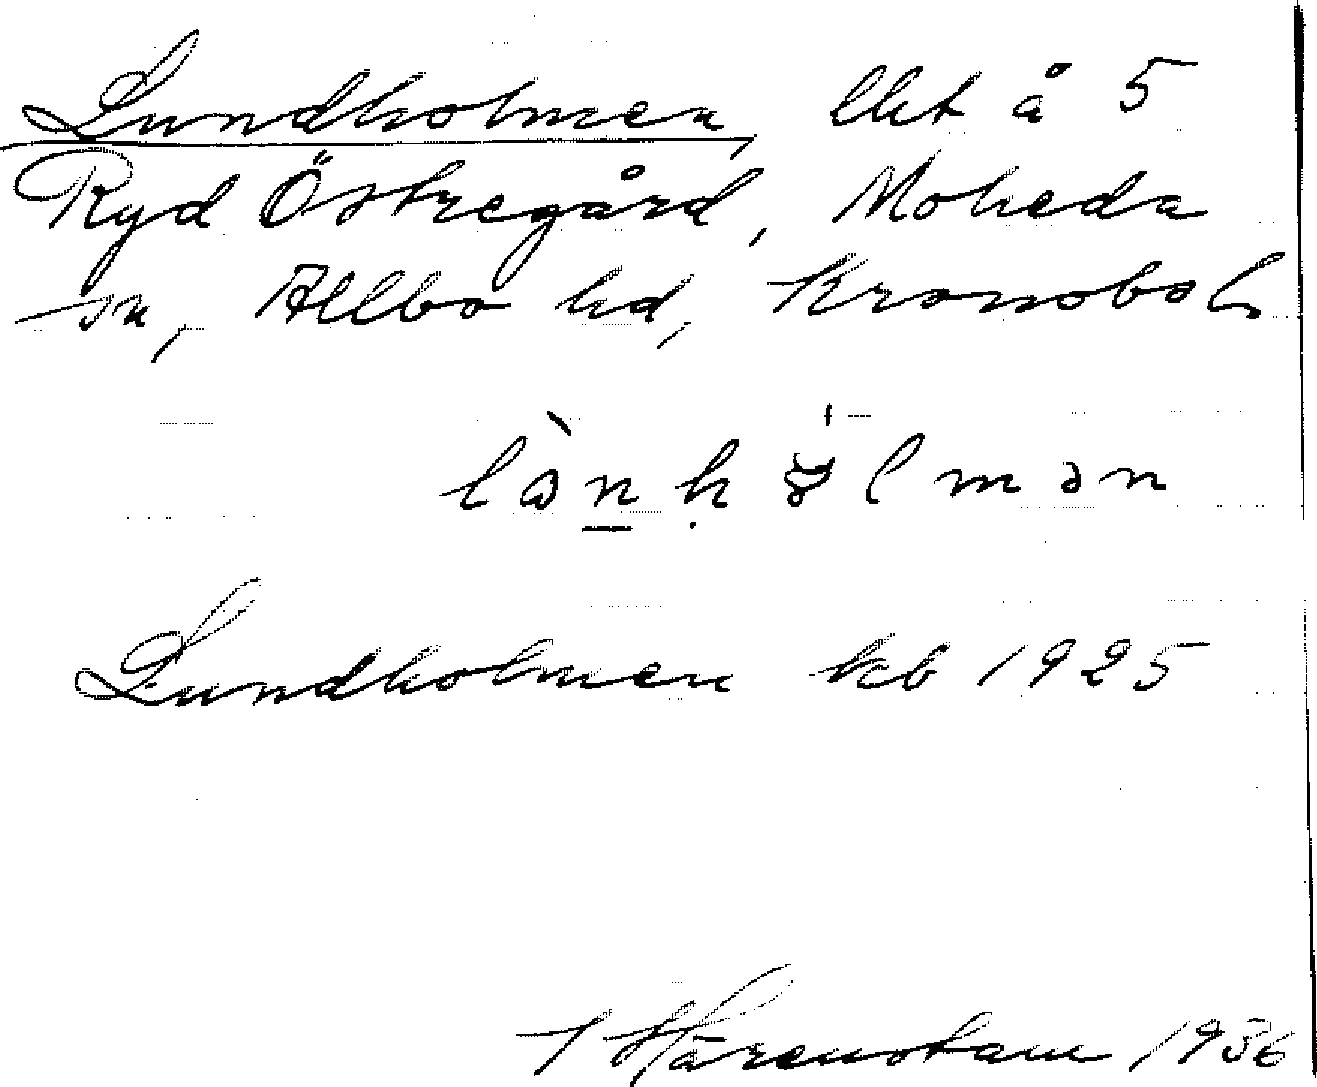 Lundholmen, lht å 5
Ryd Östregård, Moheda
sn, Allbo hd, Kronobgs
Lundholmen kb 1925
Härenstam 1936